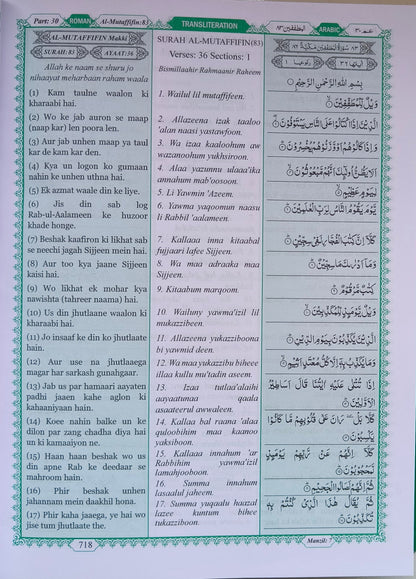 Para: 30
ROMAN
Al-Mutaffifin:83
TRANSLITERATION
ARABIC
AL-MUTAFFIFIN Makki
SURAH: 83
AYAAT:36
Allah ke naam se shuru jo
nihaayat meharbaan raham waala
(1) Kam taulne waalon ki
kharaabi hai.
(2) Wo ke jab auron se maap
(naap kar) len poora len.
(3) Aur jab unhen maap ya taul
kar de kam kar den.
(4) Kya un logon ko gumaan
nahin ke unhen uthna hai.
(5) Ek azmat waale din ke liye.
(6) Jis din sab log
Rab-ul-Aalameen ke huzoor
khade honge.
(7) Beshak kaafiron ki likhat sab
se neechi jagah Sijjeen mein hai.
(8) Aur too kya jaane Sijjeen
kaisi hai.
(9) Wo likhat ek mohar kya
nawishta (tahreer naama) hai.
(10) Us din jhutlaane waalon ki
kharaabi hai.
(11) Jo insaaf ke din ko jhutlaate
hain.
(12) Aur use na jhutlaaega
magar har sarkash gunahgaar.
(13) Jab us par hamaari aayaten
padhi jaaen kahe aglon ki
kahaaniyaan hain.
(14) Koee nahin balke un ke
dilon par zang chadha diya hai
un ki kamaaiyon ne.
(15) Haan haan beshak wo us
din apne Rab ke deedaar se
mahroom hain.
(16) Phir beshak unhen
jahannam mein daakhil hona.
(17) Phir kaha jaaega, ye hai wo
jise tum jhutlaate the.
SURAH AL-MUTAFFIFIN(83)
Verses: 36 Sections: 1
Bismillaahir Rahmaanir Raheem
1. Wailul lil mutaffifeen.
2. Allazeena izak taaloo
'alan naasi yastawfoon.
3. Wa izaa kaaloohum aw
wazanoohum yukhsiroon.
4. Alaa yazunnu ulaaa'ika
annahum mab'oosoon.
5. Li Yawmin 'Azeem.
6. Yawma yaqoomun naasu
li Rabbil 'aalameen.
7. Kallaaa inna kitaabal
fujjaari lafee Sijjeen.
8. Wa maa adraaka maa
Sijjeen.
9. Kitaabum marqoom.
10. Wailuny yawma'izil lil
mukazzibeen.
11. Allazeena yukazziboona
bi yawmid deen.
12. Wa maa yukazzibu biheee
illaa kullu mu'tadin aseem.
13. Izaa tutlaa'alaihi
aayaatumaa qaala
asaateerul awwaleen.
14. Kallaa bal raana 'alaa
quloobihim maa kaanoo
yaksiboon.
15. Kallaaa innahum 'ar
Rabbihim yawma'izil
lamahjooboon.
16. Summa innahum
lasaalul jaheem.
17. Summa yuqaalu haazal
lazee kuntum bihee
tukazziboon.
بِسْمِ اللّٰهِ الرَّحْمٰنِ الرَّحِيْمِ
وَيْلٌ لِّلْمُطَفِّفِيْنَ ۝
الَّذِيْنَ اِذَا اكْتَالُوْا عَلَى النَّاسِ يَسْتَوْفُوْنَ ۝
وَاِذَا كَالُوْهُمْ اَوْ وَّزَنُوْهُمْ يُخْسِرُوْنَ ۝
اَلَا يَظُنُّ اُولٰٓئِكَ اَنَّهُمْ مَّبْعُوْثُوْنَ ۝
لِيَوْمٍ عَظِيْمٍ ۝
يَّوْمَ يَقُوْمُ النَّاسُ لِرَبِّ الْعٰلَمِيْنَ ۝
كَلَّآ اِنَّ كِتٰبَ الْفُجَّارِ لَفِيْ سِجِّيْنٍ ۝
وَمَآ اَدْرٰىكَ مَا سِجِّيْنٌ ۝
كِتٰبٌ مَّرْقُوْمٌ ۝
وَيْلٌ يَّوْمَئِذٍ لِّلْمُكَذِّبِيْنَ ۝
الَّذِيْنَ يُكَذِّبُوْنَ بِيَوْمِ الدِّيْنِ ۝
وَمَا يُكَذِّبُ بِهٖٓ اِلَّا كُلُّ مُعْتَدٍ اَثِيْمٍ ۝
اِذَا تُتْلٰى عَلَيْهِ اٰيٰتُنَا قَالَ اَسَاطِيْرُ
الْاَوَّلِيْنَ ۝
كَلَّا بَلْ رَانَ عَلٰى قُلُوْبِهِمْ مَّا كَانُوْا
يَكْسِبُوْنَ ۝
كَلَّآ اِنَّهُمْ عَنْ رَّبِّهِمْ يَوْمَئِذٍ
لَّمَحْجُوْبُوْنَ ۝
ثُمَّ اِنَّهُمْ لَصَالُوا الْجَحِيْمِ ۝
ثُمَّ يُقَالُ هٰذَا الَّذِيْ كُنْتُمْ بِهٖ
تُكَذِّبُوْنَ ۝
718
Manzil: